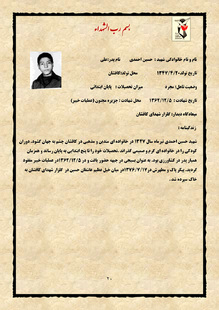 بسم رب الشهداء
نام و نام خانوادگی شهید : حسین احمدی نام پدر:علی
تاریخ تولد:۱۳۴۷/۴/۴ محل تولد:کاشان
وضعیت تاهل: مجرد میزان تحصیلات : پایان ابتدایی
تاریخ شهادت : ۱۳۶۲/۱۲/۵ محل شهادت : جزیره مجنون (عملیات خیبر)
میعادگاه دیدار: گلزار شهدای کاشان
زندگینامه :
شهید حسین احمدی تیر ماه سال ۱۳۴۷ در خانواده ای متدین و مذهبی در کاشان چشم به جهان گشود. دوران
کودکی را در خانواده ای گرم و صمیمی گذراند. تحصیلات خود را تا پنج ابتدایی به پایان رساند و همزمان
همیار پدر در کشاورزی بود. به عنوان بسیجی در جبهه حضور یافت و در ۱۳۶۲/۱۲/۵در عملیات خیبر مفقود
گردید. پیکر پاک و مطهرش در۱۳۷۶/۷/۱۲در میان خیل عظیم عاشقان حسینی در گلزار شهدای کاشان به
خاک سپرده شد.